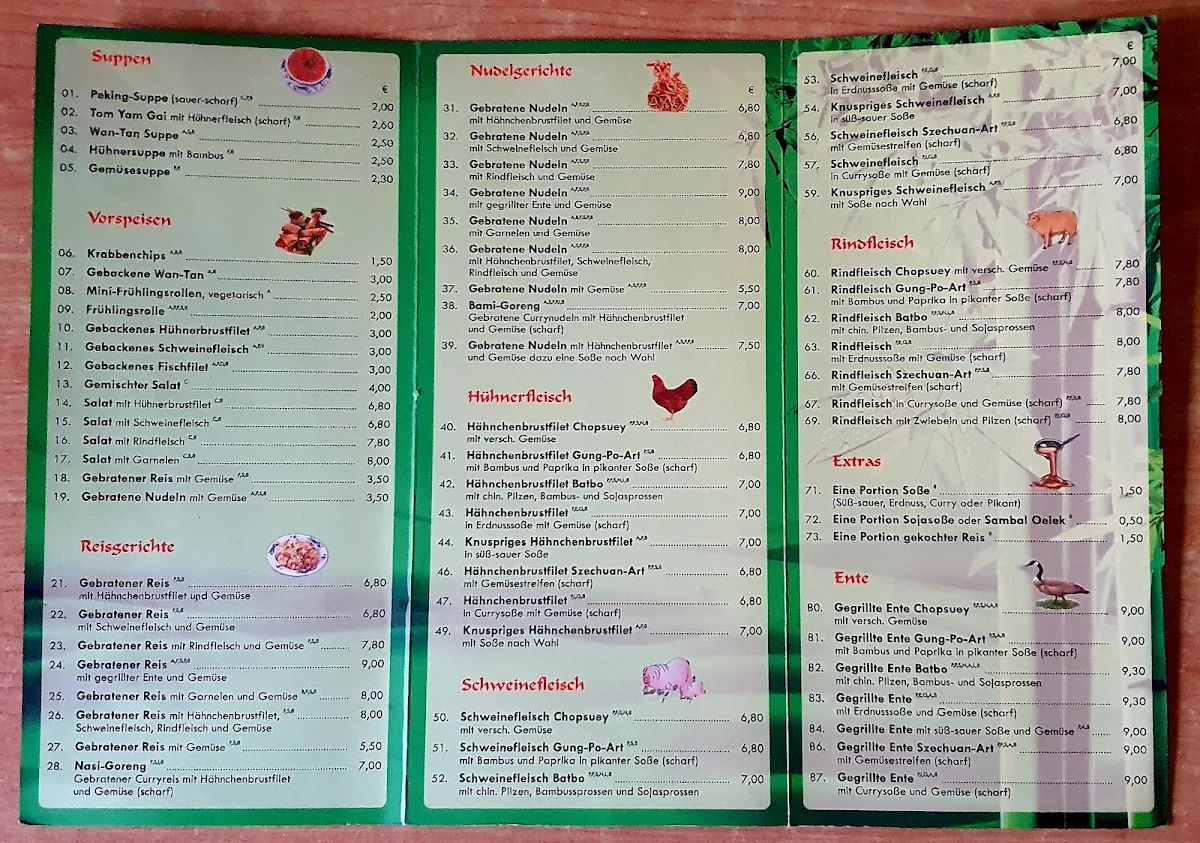 Suppen
€
01. Peking-Suppe (sauer-scharf) 2,00
02. Tom Yam Gai mit Hühnerfleisch (scharf) 2,60
03. Wan-Tan Suppe 2,50
04. Hühnersuppe mit Bambus 2,50
05. Gemüsesuppe 2,30
Vorspeisen
06. Krabbenchips 1,50
07. Gebackene Wan-Tan 3,00
08. Mini-Frühlingsrollen, vegetarisch 2,50
09. Frühlingsrolle 2,00
10. Gebackenes Hühnerbrustfilet 3,00
11. Gebackenes Schweinefleisch 3,00
12. Gebackenes Fischfilet 3,00
13. Gemischter Salat 4,00
14. Salat mit Hühnerbrustfilet 6,80
15. Salat mit Schweinefleisch 6,80
16. Salat mit Rindfleisch 7,80
17. Salat mit Garnelen 8,00
18. Gebratener Reis mit Gemüse 3,50
19. Gebratene Nudeln mit Gemüse 3,50
Reisgerichte
21. Gebratener Reis 6,80
mit Hähnchenbrustfilet und Gemüse
22. Gebratener Reis 6,80
mit Schweinefleisch und Gemüse
23. Gebratener Reis mit Rindfleisch und Gemüse 7,80
24. Gebratener Reis 9,00
mit gegrillter Ente und Gemüse
25. Gebratener Reis mit Garnelen und Gemüse 8,00
26. Gebratener Reis mit Hähnchenbrustfilet, 8,00
Schweinefleisch, Rindfleisch und Gemüse
27. Gebratener Reis mit Gemüse 5,50
28. Nasi-Goreng 7,00
Gebratener Curryreis mit Hähnchenbrustfilet
und Gemüse (scharf)
Nudelgerichte
€
31. Gebratene Nudeln 6,80
mit Hähnchenbrustfilet und Gemüse
32. Gebratene Nudeln 6,80
mit Schweinefleisch und Gemüse
33. Gebratene Nudeln 7,80
mit Rindfleisch und Gemüse
34. Gebratene Nudeln 9,00
mit gegrillter Ente und Gemüse
35. Gebratene Nudeln 8,00
mit Garnelen und Gemüse
36. Gebratene Nudeln 8,00
mit Hähnchenbrustfilet, Schweinefleisch,
Rindfleisch und Gemüse
37. Gebratene Nudeln mit Gemüse 5,50
38. Bami-Goreng 7,00
Gebratene Currynudeln mit Hähnchenbrustfilet
und Gemüse (scharf)
39. Gebratene Nudeln mit Hähnchenbrustfilet 7,50
und Gemüse dazu eine Soße nach Wahl
Hühnerfleisch
40. Hähnchenbrustfilet Chopsuey 6,80
mit versch. Gemüse
41. Hähnchenbrustfilet Gung-Po-Art 6,80
mit Bambus und Paprika in pikanter Soße (scharf)
42. Hähnchenbrustfilet Batbo 7,00
mit chin. Pilzen, Bambus- und Sojasprossen
43. Hähnchenbrustfilet 7,00
in Erdnusssoße mit Gemüse (scharf)
44. Knuspriges Hähnchenbrustfilet 7,00
in süß-sauer Soße
46. Hähnchenbrustfilet Szechuan-Art 6,80
mit Gemüsestreifen (scharf)
47. Hähnchenbrustfilet 6,80
in Currysoße mit Gemüse (scharf)
49. Knuspriges Hähnchenbrustfilet 7,00
mit Soße nach Wahl
Schweinefleisch
50. Schweinefleisch Chopsuey 6,80
mit versch. Gemüse
51. Schweinefleisch Gung-Po-Art 6,80
mit Bambus und Paprika in pikanter Soße (scharf)
52. Schweinefleisch Batbo 7,00
mit chin. Pilzen, Bambussprossen und Sojasprossen
€
53. Schweinefleisch 7,00
in Erdnusssoße mit Gemüse (scharf)
54. Knuspriges Schweinefleisch 7,00
in süß-sauer Soße
56. Schweinefleisch Szechuan-Art 6,80
mit Gemüsestreifen (scharf)
57. Schweinefleisch 6,80
in Currysoße mit Gemüse (scharf)
59. Knuspriges Schweinefleisch 7,00
mit Soße nach Wahl
Rindfleisch
60. Rindfleisch Chopsuey mit versch. Gemüse 7,80
61. Rindfleisch Gung-Po-Art 7,80
mit Bambus und Paprika in pikanter Soße (scharf)
62. Rindfleisch Batbo 8,00
mit chin. Pilzen, Bambus- und Sojasprossen
63. Rindfleisch 8,00
mit Erdnusssoße mit Gemüse (scharf)
66. Rindfleisch Szechuan-Art 7,80
mit Gemüsestreifen (scharf)
67. Rindfleisch in Currysoße und Gemüse (scharf) 7,80
69. Rindfleisch mit Zwiebeln und Pilzen (scharf) 8,00
Extras
71. Eine Portion Soße 1,50
(Süß-sauer, Erdnuss, Curry oder Pikant)
72. Eine Portion Sojasoße oder Sambal Oelek 0,50
73. Eine Portion gekochter Reis 1,50
Ente
80. Gegrillte Ente Chopsuey 9,00
mit versch. Gemüse
81. Gegrillte Ente Gung-Po-Art 9,00
mit Bambus und Paprika in pikanter Soße (scharf)
82. Gegrillte Ente Batbo 9,30
mit chin. Pilzen, Bambus- und Sojasprossen
83. Gegrillte Ente 9,30
mit Erdnusssoße und Gemüse (scharf)
84. Gegrillte Ente mit süß-sauer Soße und Gemüse 9,00
86. Gegrillte Ente Szechuan-Art 9,00
mit Gemüsestreifen (scharf)
87. Gegrillte Ente 9,00
mit Currysoße und Gemüse (scharf)